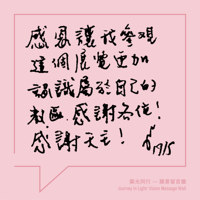 感恩讓我參觀
這個展覽更加
認識屬於自己的
教區.感謝各位!
感謝天主!
19/5
榮光同行 — 願景留言牆
Journey in Light: Vision Message Wall